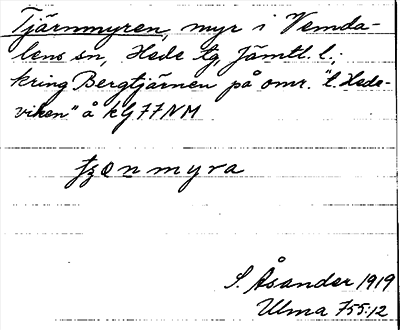 Tjärnmyren, myr i Vemda-
lens sn, Hede tg Jämtl. l.;
kring Bergtjärnen på omr. "l. Hede-
viken" å kg 77 NM
myra
S. Åsander 1919
Ulma 755:12